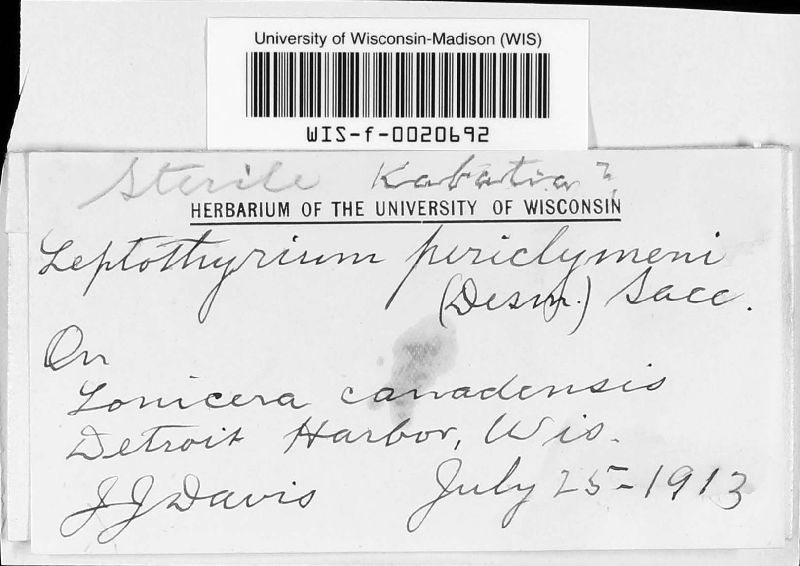 University of Wisconsin-Madison (WIS)
WIS-f-0020692
Sterile Kabatia?
HERBARIUM OF THE UNIVERSITY OF WISCONSIN
Leptothyrium periclymeni
(Desm.) Sacc.
On
Lonicera canadensis
Detroit Harbor, Wis.
JJDavis July 25-1913